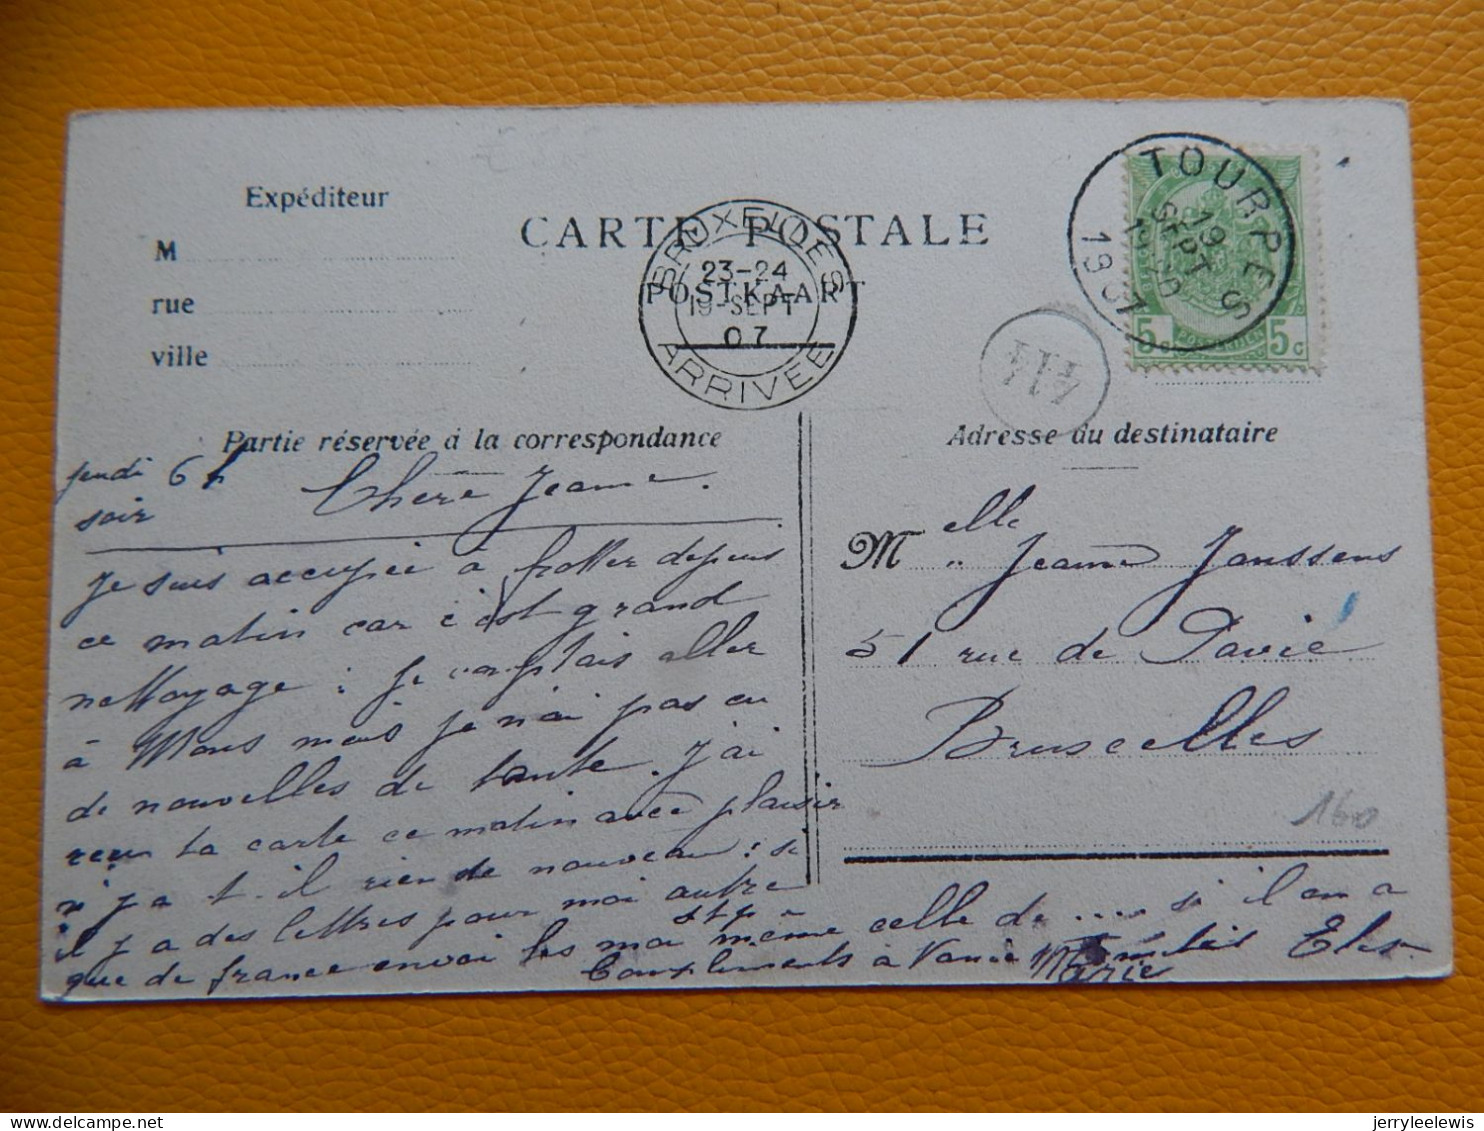 Expéditeur
M
rue
ville
CARTE POSTALE
POSTKAART
BRUXELLES
23-24
19-SEPT
07
ARRIVÉE
TOURPES
19
SEPT
1907
5c 5c
Partie réservée à la correspondance
Adresse du destinataire
jeudi 6 h
soir
Chère Jeanne.
Je suis occupée à frotter depuis
ce matin car c'est grand
nettoyage : je comptais aller
à Mons mais je n'ai pas eu
de nouvelles de tante. J'ai
reçu ta carte ce matin avec plaisir
n'y a t-il rien de nouveau : si
il y a des lettres pour moi autre
que de france envoi les moi même celle de .... si il en a
stp
Compliments à
Marie
Melle Jeanne Janssens
51 rue de Pavie
Bruxelles
160
jerryleelewis